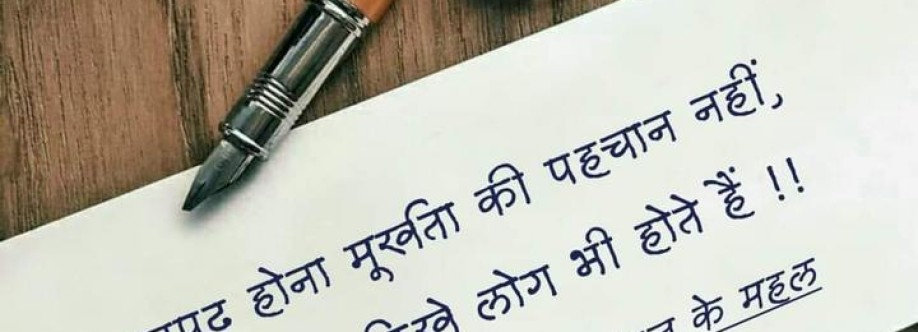 होना मूर्खता की पहचान नहीं,
लोग भी होते हैं !!
के महल